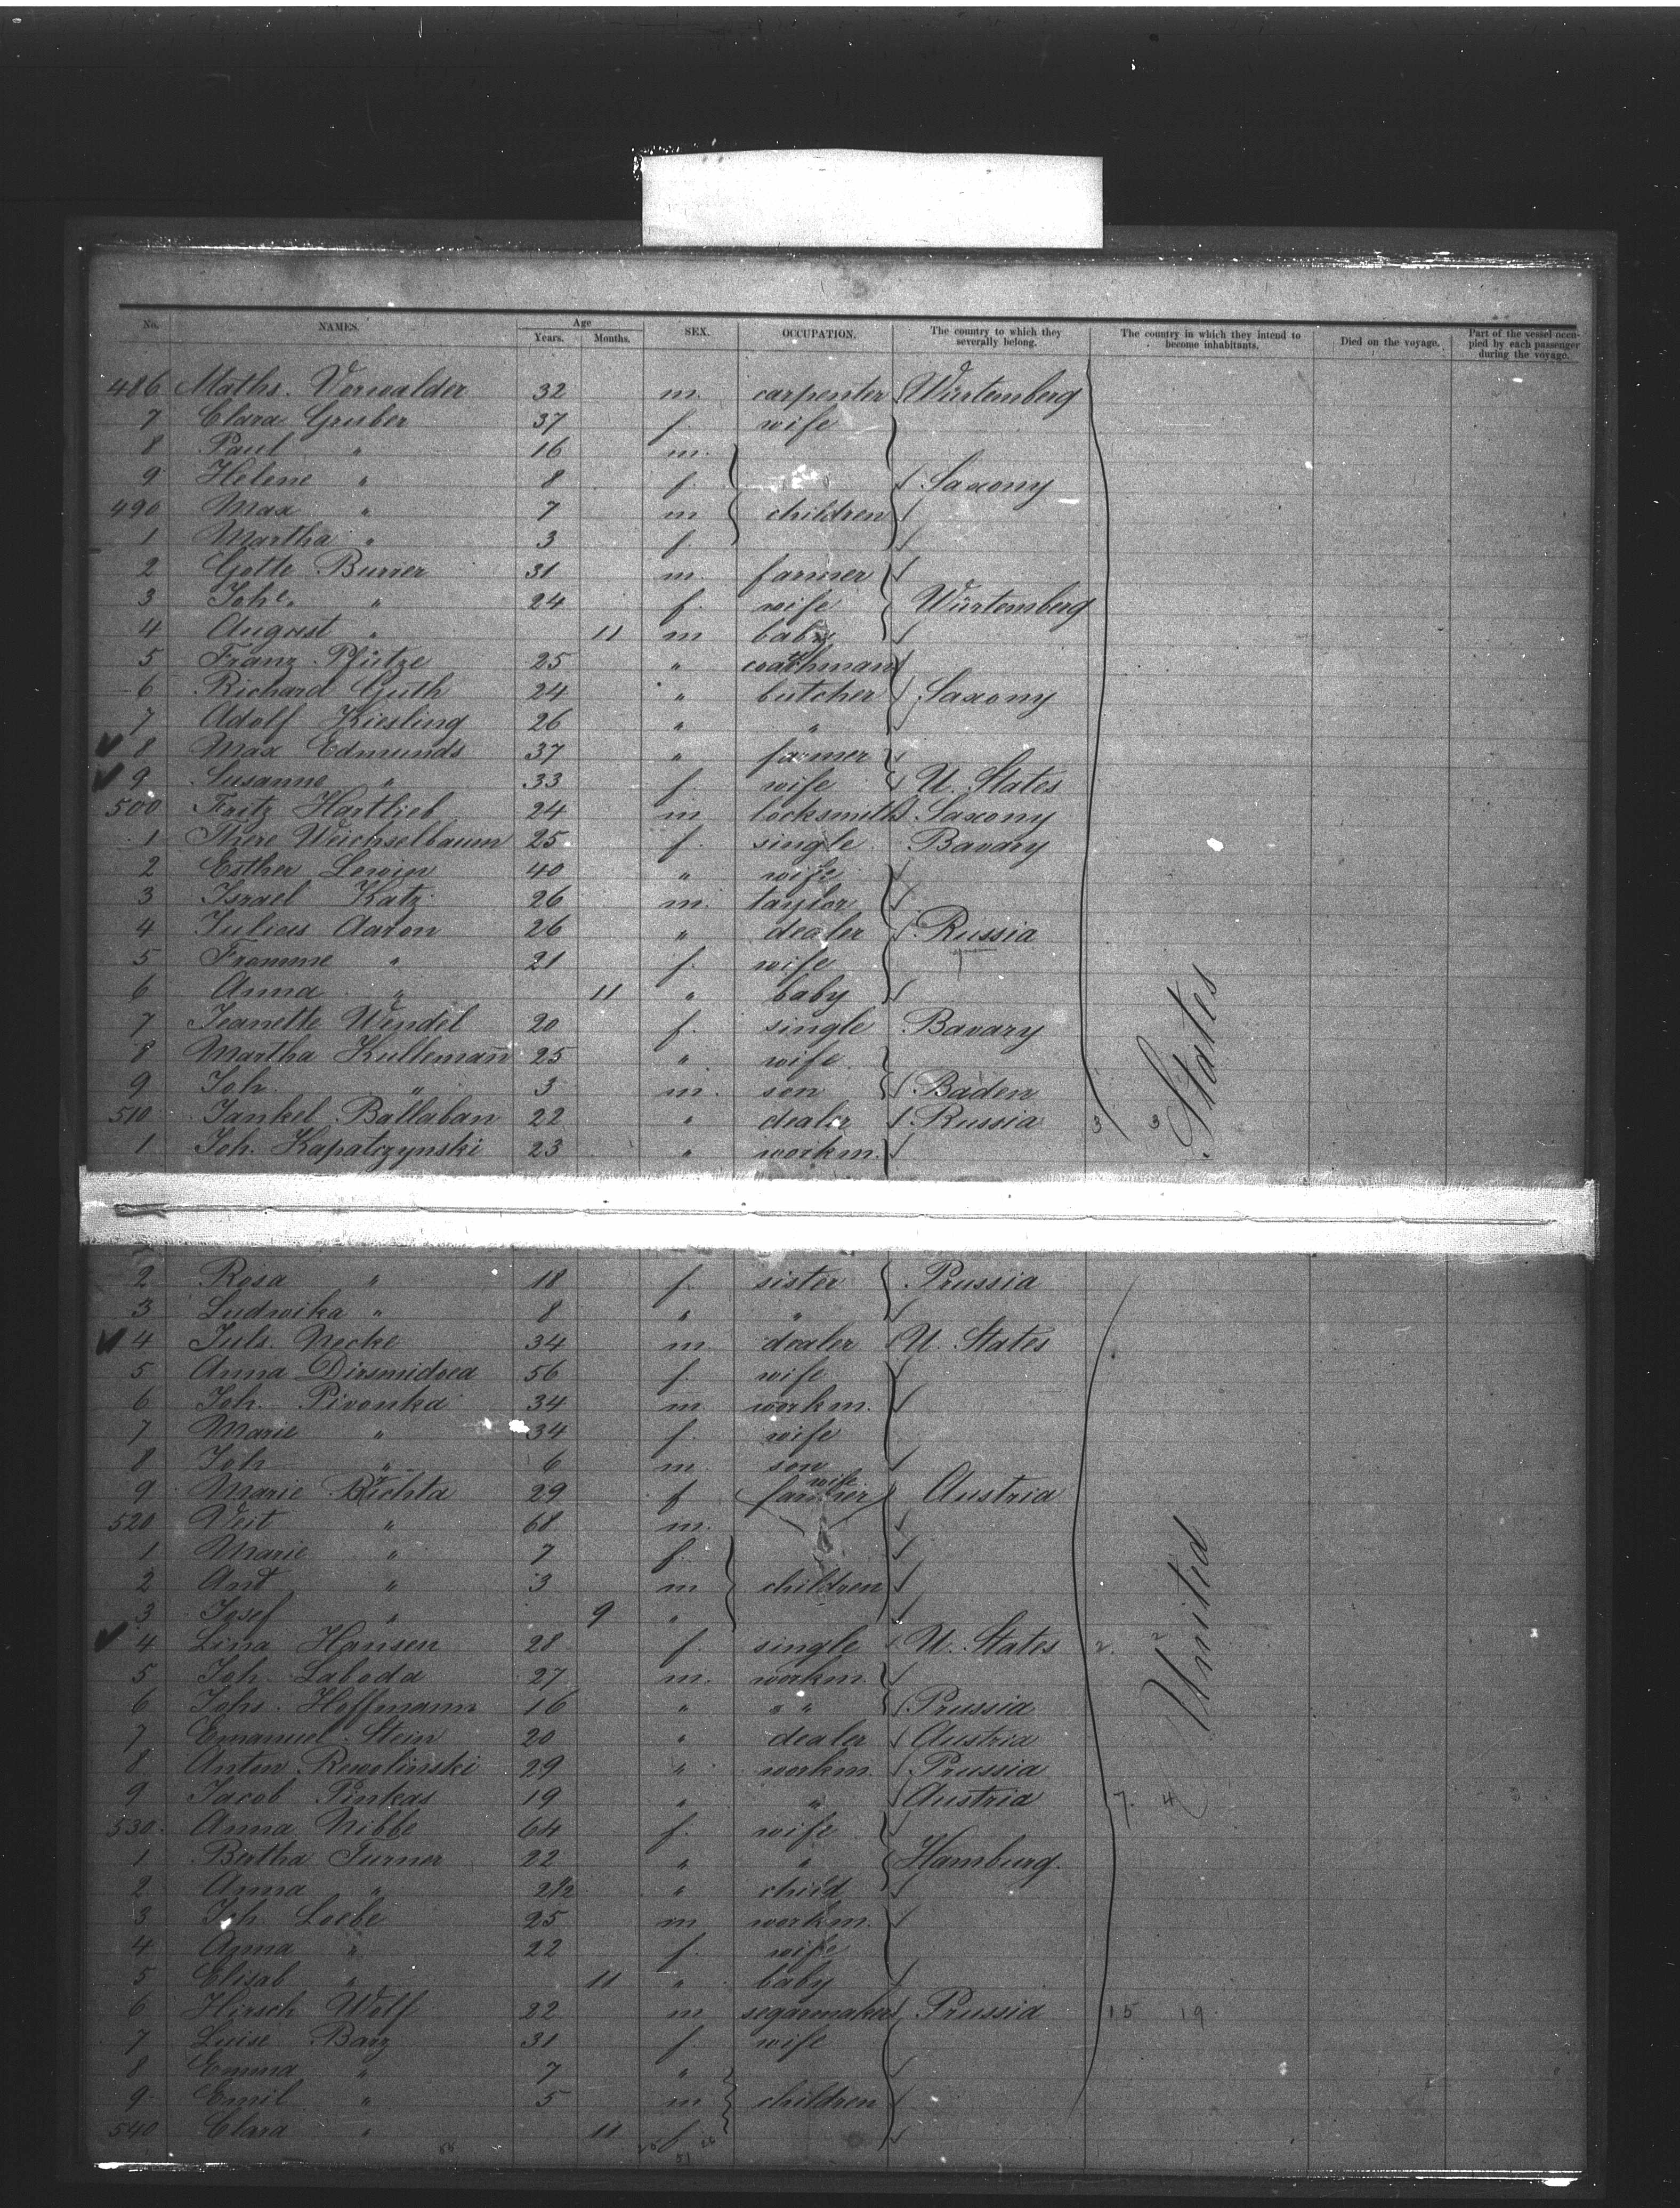 No. NAMES. Age Years. Months. SEX. OCCUPATION. The country to which they severally belong. The country in which they intend to become inhabitants. Died on the voyage. Part of the vessel occupied by each passenger during the voyage.
486 Maths. Vorwalder 32 m. carpenter Würtemberg
7 Clara Gruber 37 f. wife
8 Paul " 16 m.
9 Helene " 8 f. Saxony
490 Max " 7 m children
1 Martha " 3 f.
2 Gottl Burrer 31 m. farmer
3 Johe. " 24 f. wife Würtemberg
4 August " 11 m baby
5 Franz Pfütze 25 " coachman
6 Richard Guth 24 " butcher Saxony
7 Adolf Kiesling 26 " "
8 Max Edmunds 37 " farmer
9 Susanne " 33 f. wife U. States
500 Fritz Hartlieb 24 m locksmith Saxony
1 There Weichselbaum 25 f. single Bavary
2 Esther Lewin 40 " wife
3 Israel Katz 26 m. taylor
4 Julius Aaron 26 " dealer Russia
5 Fromme " 21 f. wife
6 Anna " 11 " baby
7 Jeanette Wendel 20 f. single Bavary
8 Martha Kullemann 25 " wife
9 Joh. " 3 m. son Baden
510 Jankel Ballaban 22 " dealer Russia 3 3
1 Joh. Kapatczynski 23 " workm.
2 Rosa " 18 f. sister Prussia
3 Ludwika " 8 " "
4 Juls. Necke 34 m. dealer U. States
5 Anna 56 f. wife
6 Joh. Pivonka 34 m. workm.
7 Marie " 34 f. wife
8 Joh " 6 m. son
9 Marie Richta 29 f wife farmer Austria
520 Veit " 68 m.
1 Marie " 7 f.
2 Ant " 3 m children
3 Josef " 9 "
4 Lina Hansen 28 f. single U. States 2. 2
5 Joh. Laboda 27 m. workm.
6 Johs. Hoffmann 16 " " " Prussia
7 Emanuel Stein 20 " dealer Austria
8 Anton Rewolinski 29 " workm. Prussia
9 Jacob Pinkas 19 " " Austria 7. 4
530 Anna Nibbe 64 f. wife
1 Bertha Turner 22 " " Hamburg.
2 Anna " 2 1/2 " child
3 Joh. Loebe 25 m workm.
4 Anna " 22 f. wife
5 Elisab " 11 " baby
6 Hirsch Wolf 22 m segarmaker Prussia 15 19
7 Luise Barz 31 f. wife
8 Emma " 7 "
9 Emil " 5 m children
540 Clara " 11 f.
United States